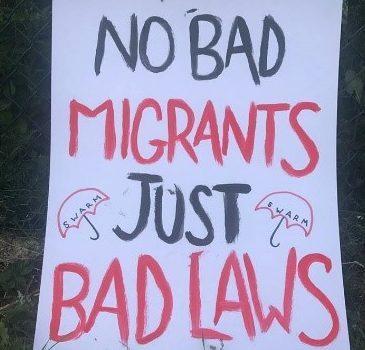 NO BAD
MIGRANTS
SWARM
JUST
SWARM
BAD LAWS